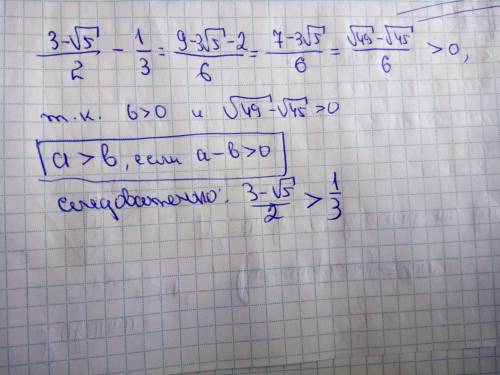 (3-√5)/2 - 1/3 = (9-3√5-2)/6 = (7-3√5)/6 = (√49-√45)/6 > 0,
т.к. 6>0 и √49-√45>0
a>b, если a-b>0
следовательно: (3-√5)/2 > 1/3